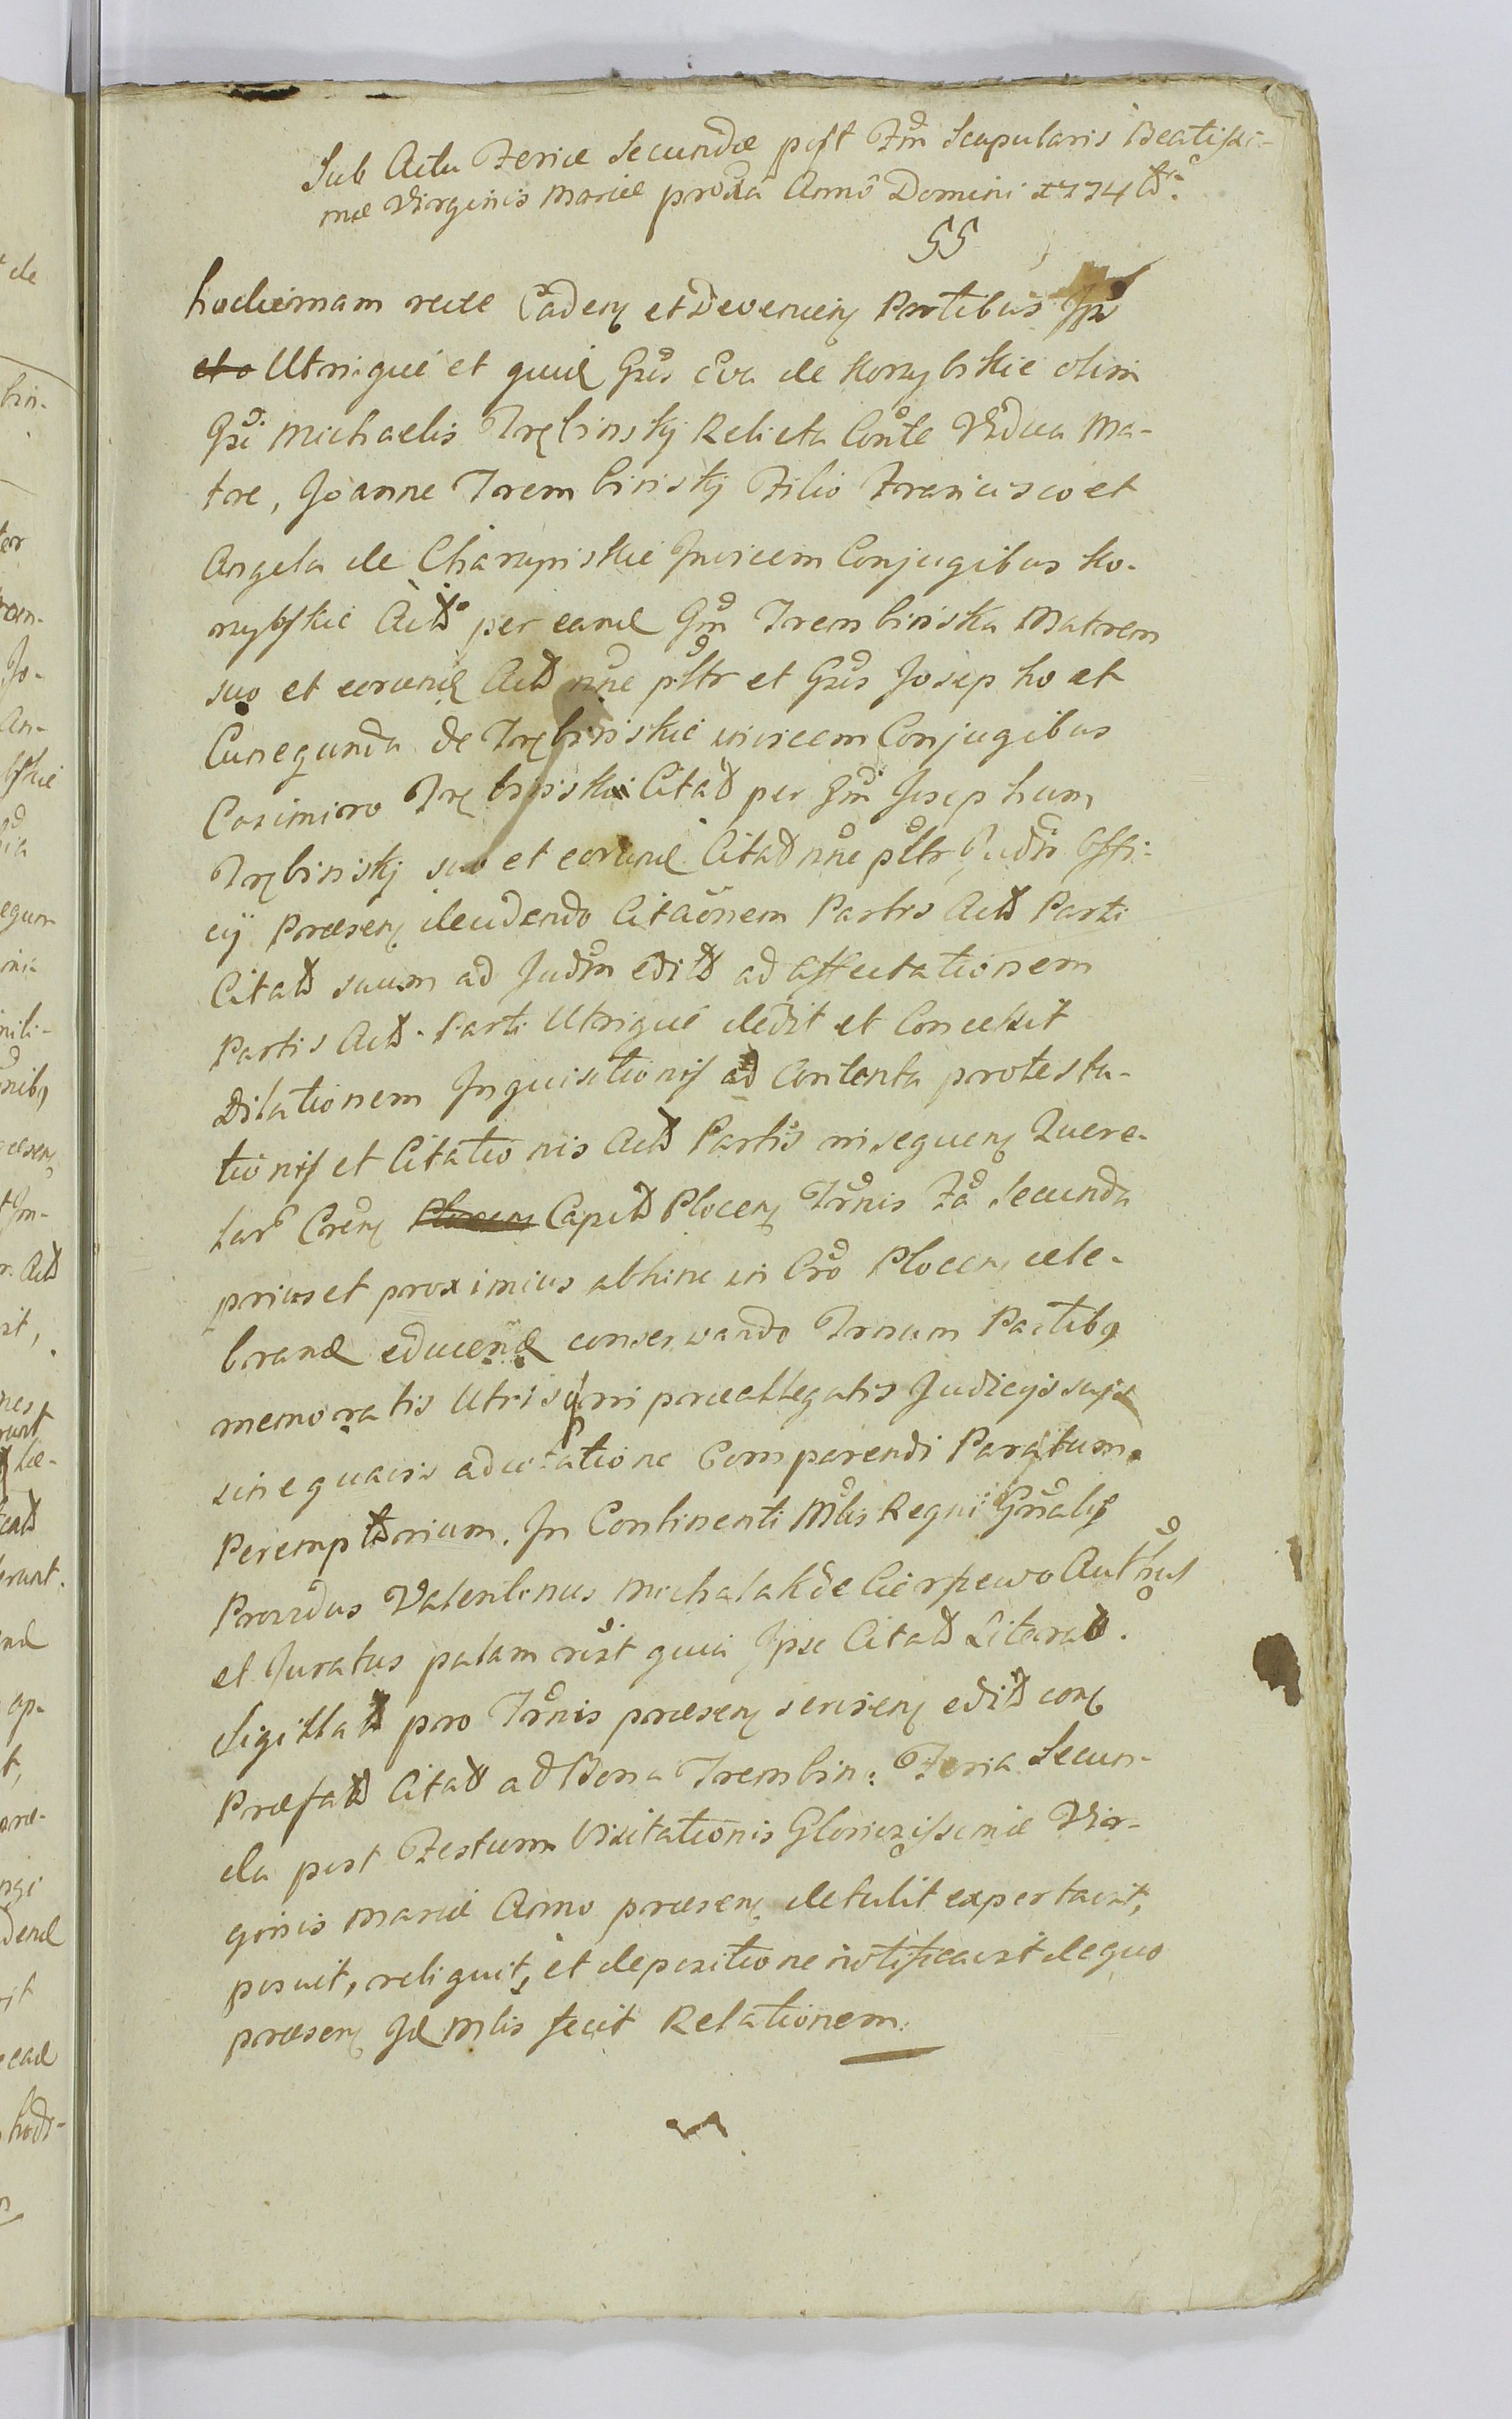 Sub Actu Feriæ Secundæ post Ftm Scapularis Beatissi-
mæ Virginis Mariæ proxa Anno Domini 1774to.
55
hodiernam recte Caden et Devenien Partibus Ip
Utrique et quid Gsis Eva de Korzybskie olim
Gsi Michaelis Trębinskij Relicta Conte Vidua Ma-
tre, Joanne Trembinskij Filio Francisco et
Angela de Charzynskie Invicem Conjugibus Ko-
rzybskie Actt per eand Gsm Trembinska Matrem
suo et eorund Actt nne pltr et Gsis Josepho et
Cunegunda de Trębinskie invicem Conjugibus
Casimiro Trębinski Citatt per Gsm Josephum
Trębinskij suo et eorund Citatt nne pltr, Judm Offi-
cij Præsen decidendo Citaonem Partis Actt Parti
Citatt suum ad Judm editt ad affectationem
Partis Actt. Parti Utrique dedit et Concessit
Dilationem Inquisitionis ad Contenta protesta-
tionis et Citationis Actt Partis insequen Quere-
lar Cren Capitt Plocen Trnis Fa Secunda
prius et proximius abhinc in Cro Plocen cele-
brand educend conservando Trnum Partibq
memoratis Utrisq in præallegatis Judicijs suis
sine quavis adcitatione Comparendi Paratum
Peremptorium. In Continenti Mlis Regni Gnalis
Providus Valentinus Michalak de Cierpewo Authus
et Juratus palam rist quia Ipse Citatt Literatt.
Sigillatt pro Trnis præsen servien editt con
Præfatt Citatt ad Bona Trembin: Feria Secun-
da post Festum Visitationis Gloriosissimæ Vir-
ginis Mariæ Anno præsen detulit expertavit,
posuit, reliquit, et depositione notificavit de quo
præsen Id Mlis fecit Relationem.